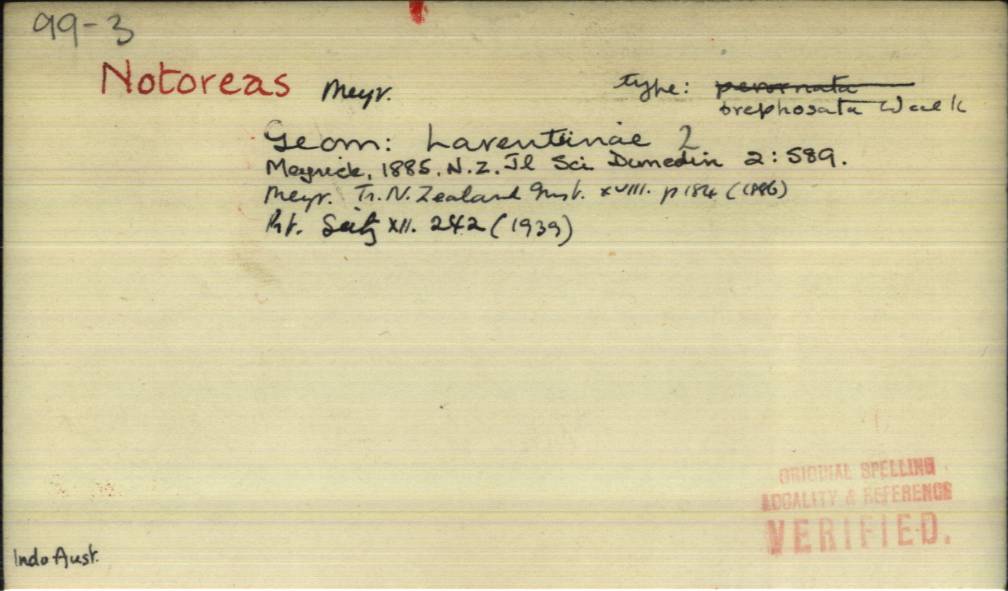 99-3
Notoreas Meyr. type: perornata
brephosata Walk
Geom: Larentiinae 2
Meyrick, 1885. N.Z. Jl Sci Dunedin 2: 589.
Meyr. Tr. N. Zealand Inst. XVIII. p 184 (1886)
Prt. Seitz XII. 242 (1939)
ORIGINAL SPELLING
LOCALITY & REFERENCE
VERIFIED.
Indo Aust.